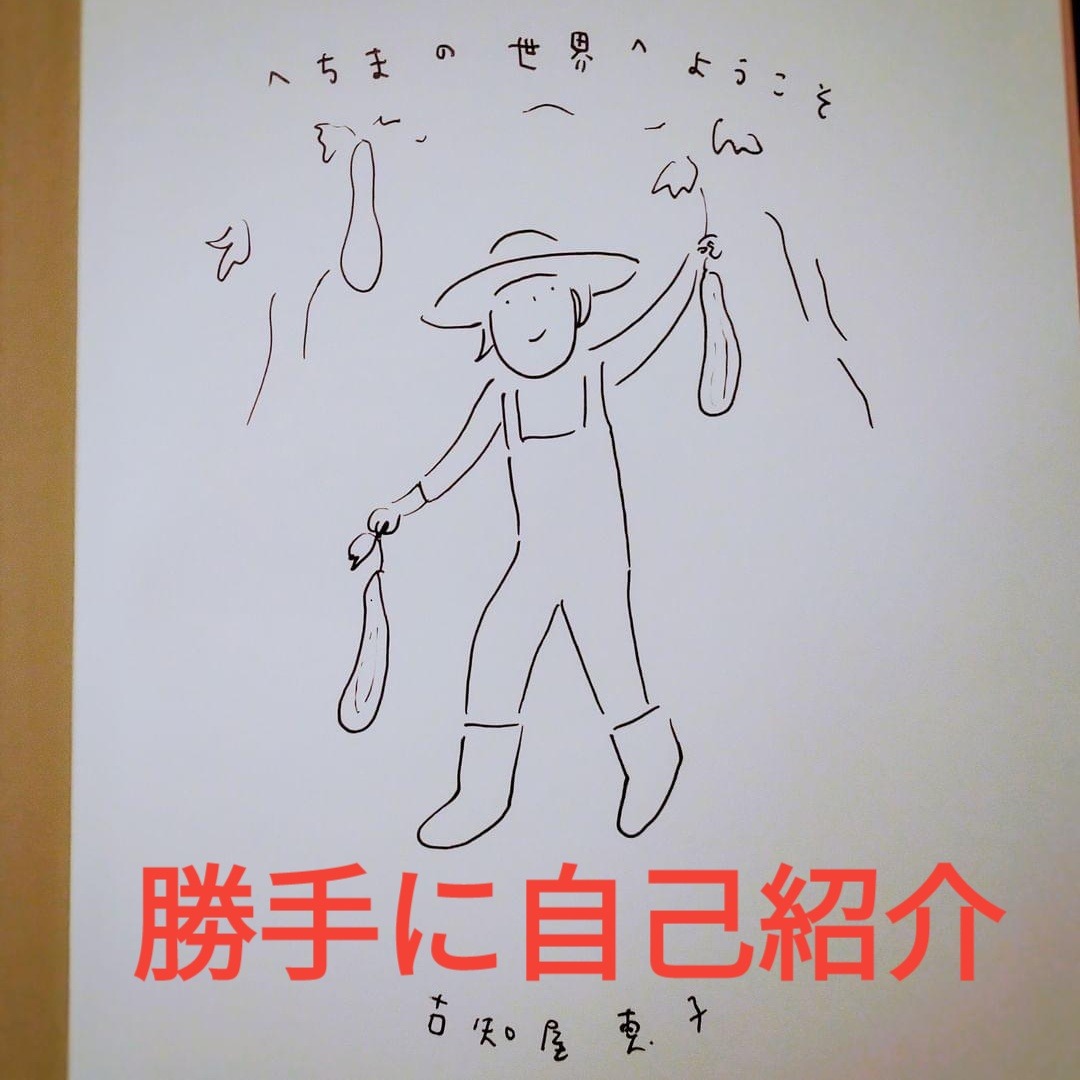 へちまの世界へようこそ
勝手に自己紹介
古知屋恵子